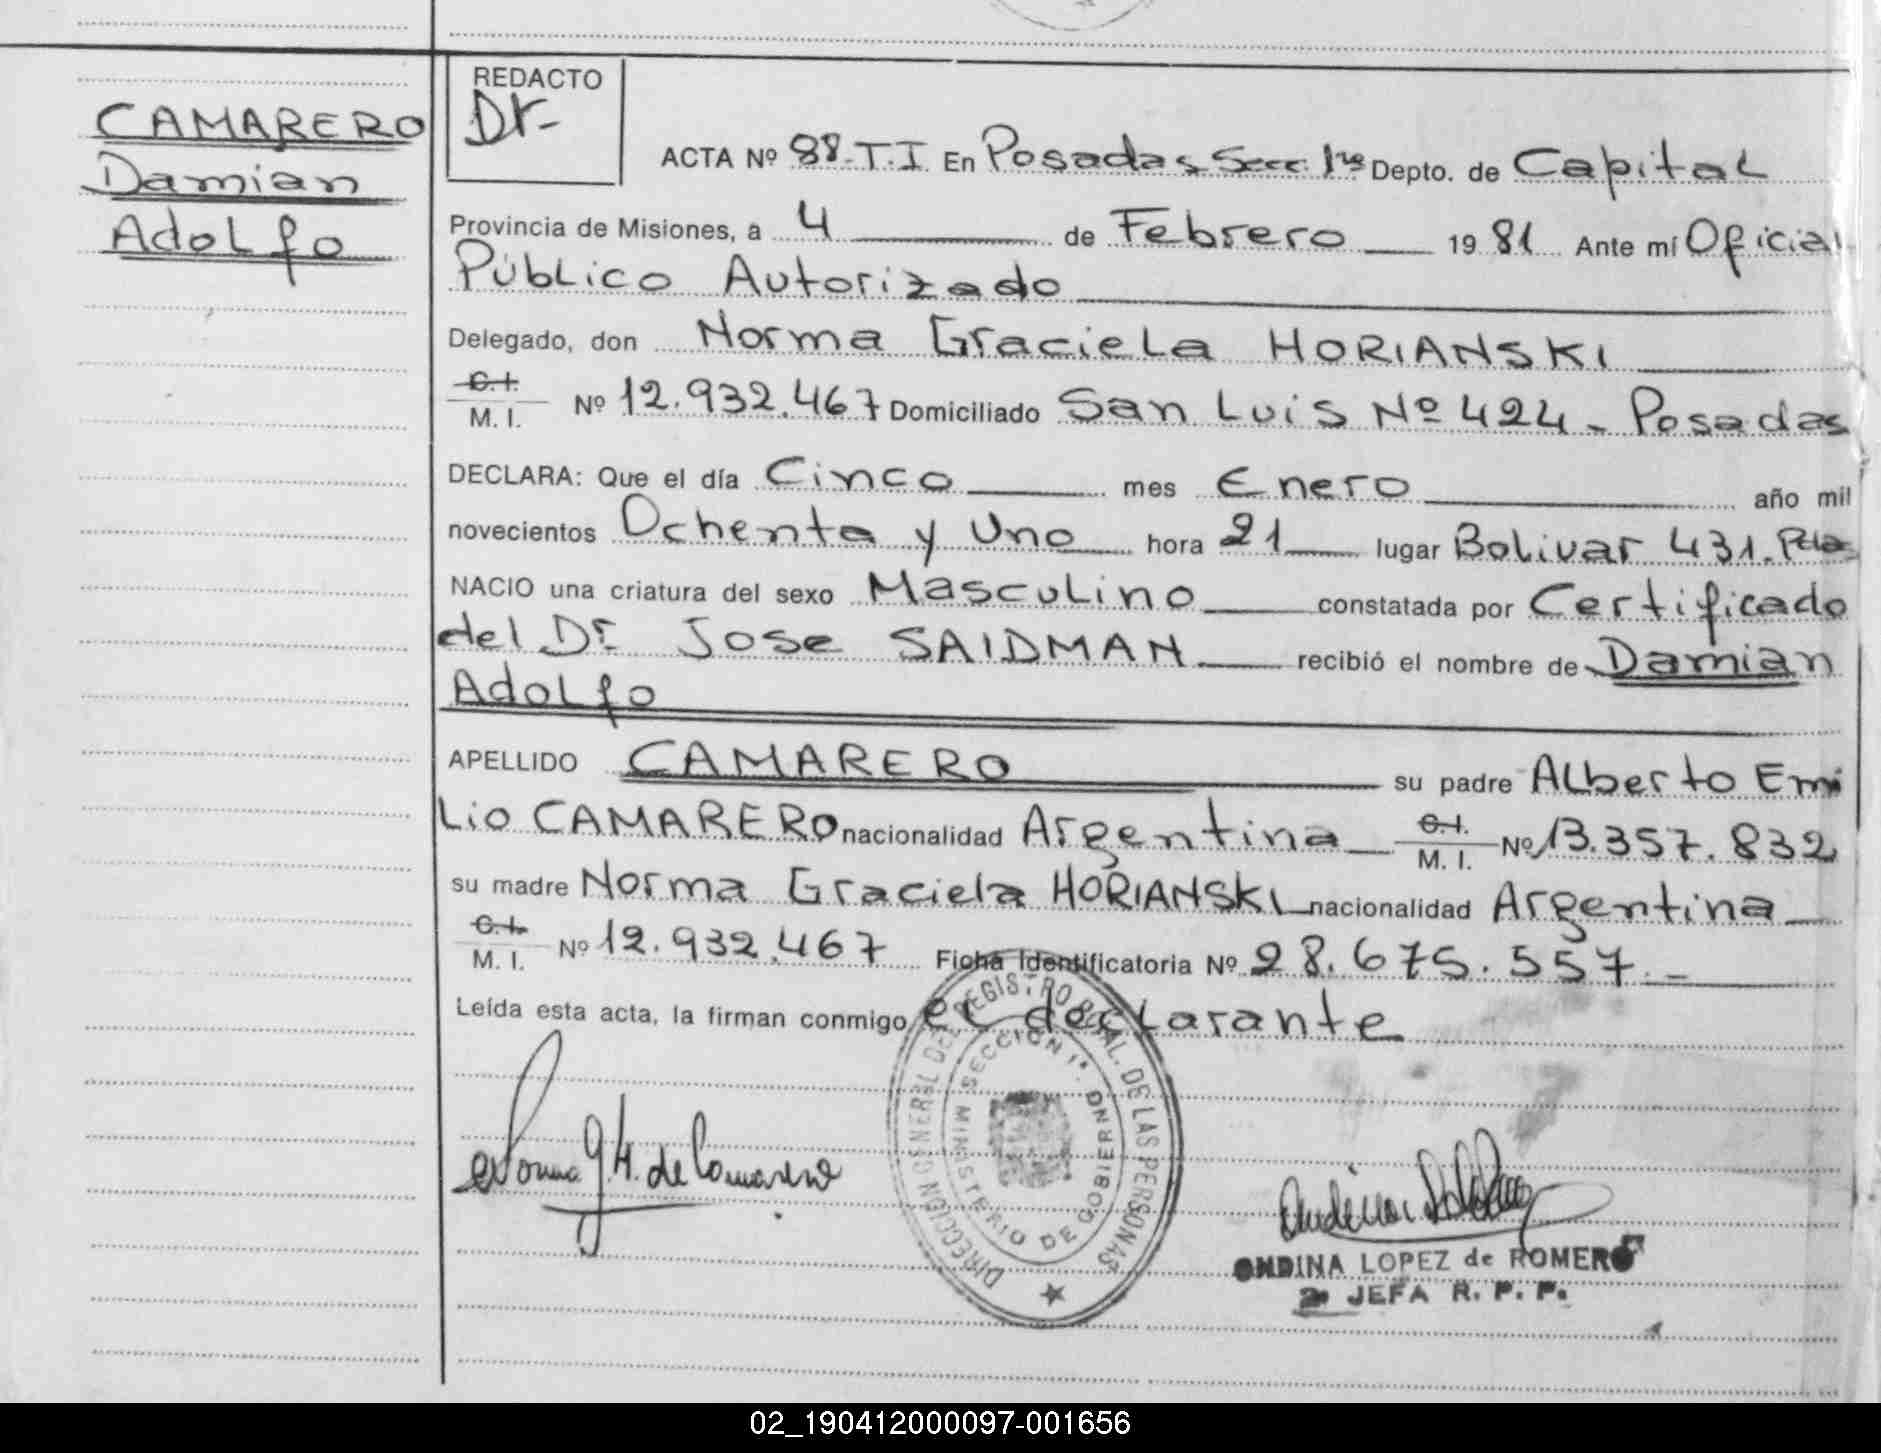 CAMARERO
Damian
Adolfo
REDACTO
Dr-
ACTA Nº 98-T.I En Posadas, Secc. 1ra Depto. de Capital
Provincia de Misiones, a 4 de Febrero 1981 Ante mí Oficial
Público Autorizado
Delegado, don Norma Graciela HORIANSKI
C.I.
M. I. Nº 12.932.467 Domiciliado San Luis Nº 424 - Posadas
DECLARA: Que el día Cinco mes Enero año mil
novecientos Ochenta y Uno hora 21 lugar Bolivar 431. Pdas
NACIO una criatura del sexo Masculino constatada por Certificado
del Dr. Jose SAIDMAN recibió el nombre de Damian
Adolfo
APELLIDO CAMARERO su padre Alberto Emi
Lio CAMARERO nacionalidad Argentina C.I.
M. I. Nº 13.357.832
su madre Norma Graciela HORIANSKI nacionalidad Argentina
C.I.
M. I. Nº 12.932.467 Ficha Identificatoria Nº 28.675.557.-
Leída esta acta, la firman conmigo el declarante
Norma G H. de Camarero
DIRECCION GENERAL DEL REGISTRO PCIAL. DE LAS PERSONAS
SECCION 1ª.
MINISTERIO DE GOBIERNO
ONDINA LOPEZ de ROMERO
2ª JEFA R. P. P.
02_190412000097-001656